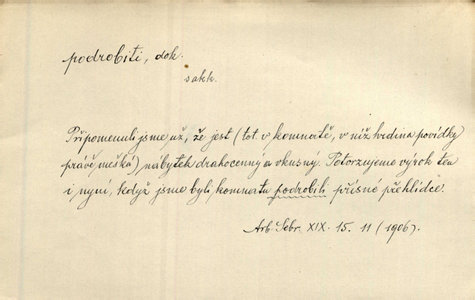 podrobiti, dok.
sakk.
Připomenuli jsme už, že jest (tot. v komnatě, v níž hrdina povídky
právě mešká) nábytek drahocenný a vkusný. Potvrzujeme výrok ten
i nyní, když jsme byli komnatu podrobili přísné přehlídce.
Arb. Sebr. XIX. 15. 11 (1906).